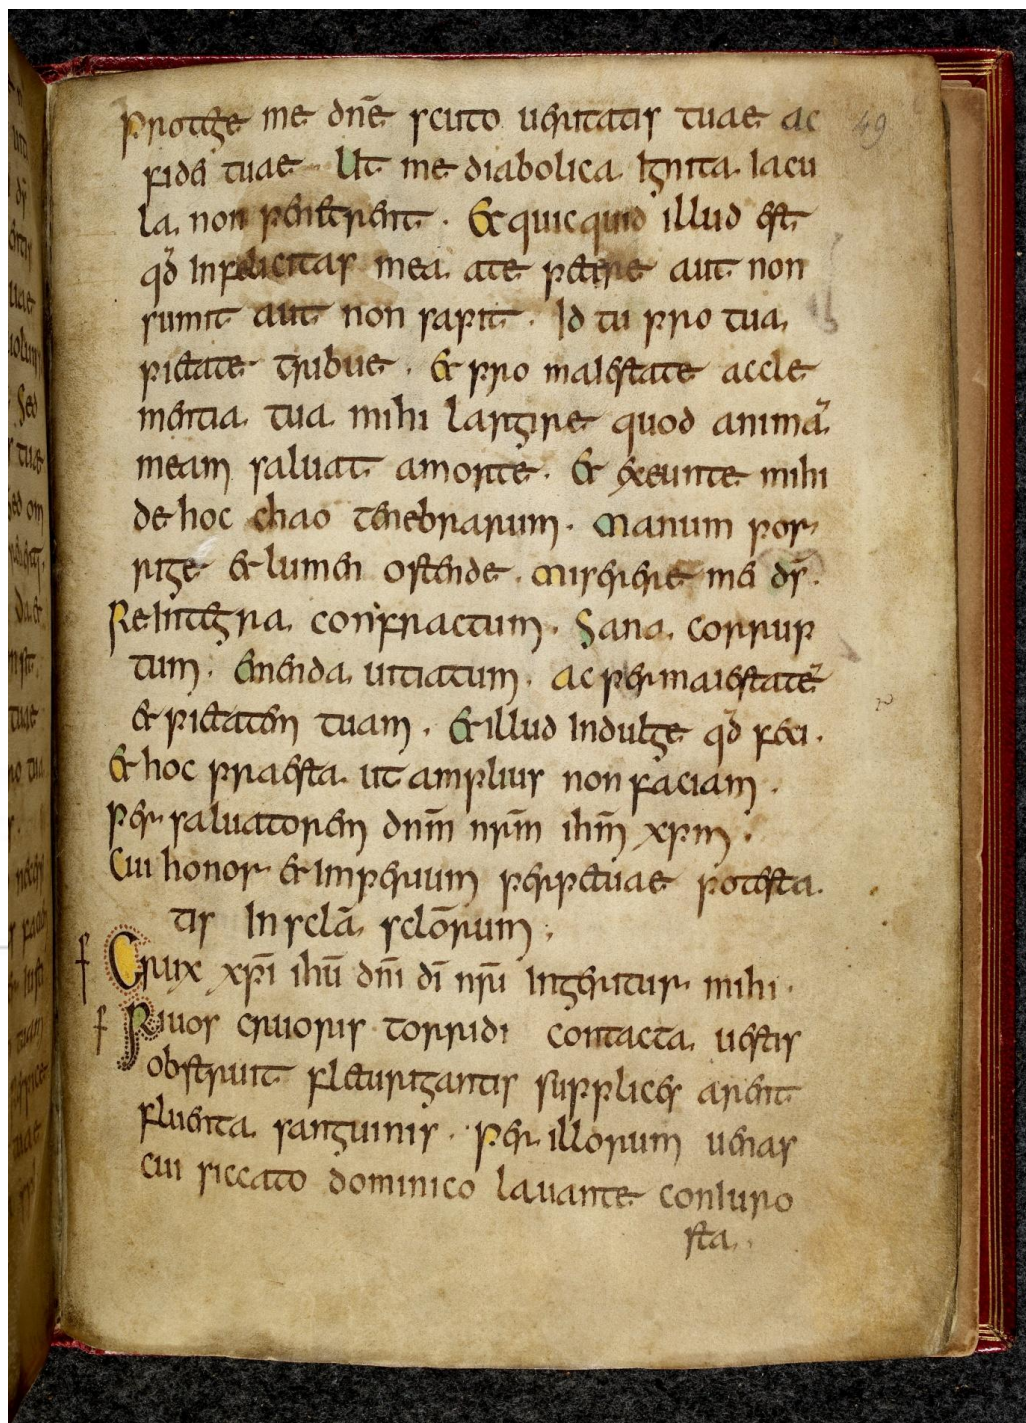 Protege me dnē scuto ueritatis tuae ac 49
fidei tuae Ut me diabolica Ignita Iacu
la, non penetrent · Et quicquid illud est
qd̄ Infelicitas mea ate petere aut non
sumit aut non sapit · Id tu pro tua,
pietate tribue · Et pro maiestate accle
mentia tua mihi largire quod animā
meam saluat amorte · Et exeunte mihi
de hoc chao tenebrarum · Manum por
rige et lumen ostende · Miserere mei ds̄ ·
Reintegra, confractum · Sana, corrup
tum · Emenda, uitiatum · ac per maiestatē
et pietatem tuam · Et illud Indulge qd̄ feci ·
Et hoc praesta ut amplius non faciam ·
Per saluatorem dnm̄ nrm̄ ihm̄ xpm ·
Cui honor et Imperium perpetuae potesta
tis In sclā sclōrum ·
Crux xpī ihū dnī dī nrī Ingeritur mihi ·
Riuos cruoris torridi contacta, uestis
obstruit fletu rigantis supplices arent
fluenta, sanguinis · Per illorum uenas
cui siccato dominico lauante coniuro
sta,